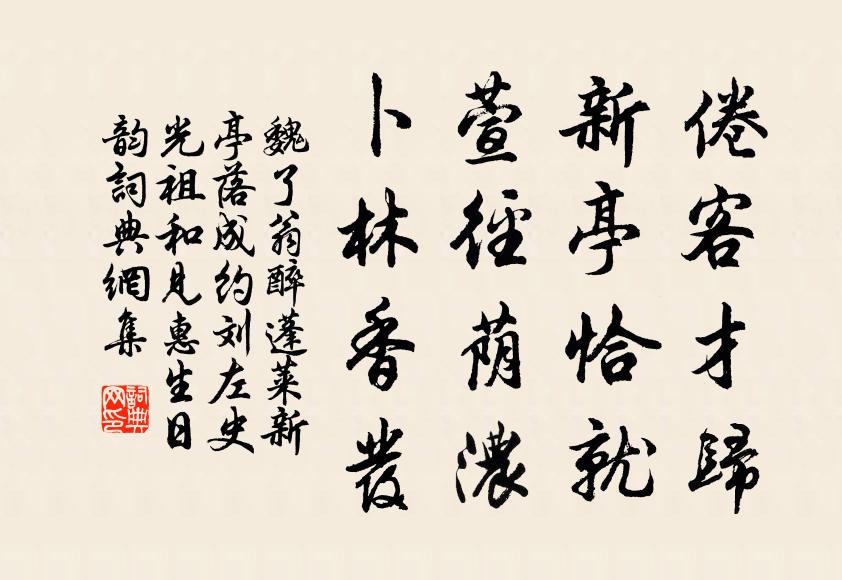 倦客才歸
新亭恰就
萱徑荫濃
卜林香發
魏了翁醉蓬莱新
亭落成约刘左史
光祖和見惠生日
韵詞典網集
詞典
网印